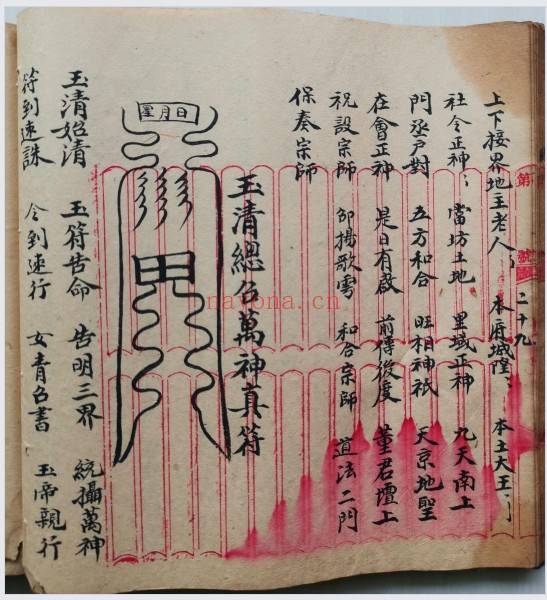 上下接界地主老人、 本府城隍、 本土大王、
社令正神、 當坊土地 里域正神 九天南上
門丞户對 五方和合 旺相神祇 天京地聖
在會正神 是日有啟 前傳後度 董君壇上
祝設宗師 卯揚歌雩 和合宗師 道法二門
保奏宗師
玉清總召萬神真符
日月星
玉清始清 玉符告命 告明三界 統攝萬神
符到速誅 令到速行 女青召書 玉帝親行
第 號
二十九
navona.cn